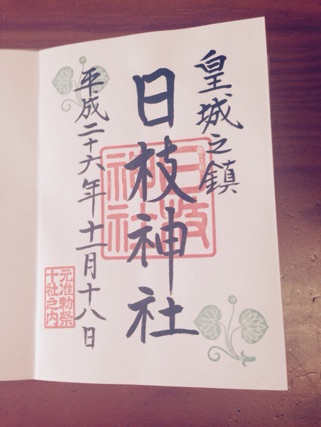 皇城之鎮
日枝神社
日枝
神社
平成二十六年十一月十八日
元准勅祭
十社之内